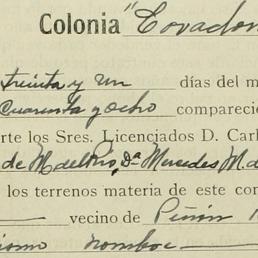 Colonia "Covadon
treinta y un días del m
Cuarenta y ocho compareci
rte los Sres. Licenciados D. Carl
de Maelliis, Da Mercedes M. d
los terrenos materia de este con
vecino de Piñón 1
ismo nombre